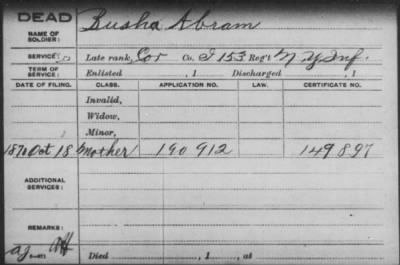 DEAD
NAME OF SOLDIER: Busha Abram
SERVICE: Late rank, Cor Co. I 153 Reg't N. Y. Inf.
TERM OF SERVICE: Enlisted , 1 Discharged , 1
DATE OF FILING. CLASS. APPLICATION NO. LAW. CERTIFICATE NO.
Invalid,
Widow,
Minor,
1870 Oct 18 Mother 190 912 149 897
ADDITIONAL SERVICES:
REMARKS:
Died , 1 , at